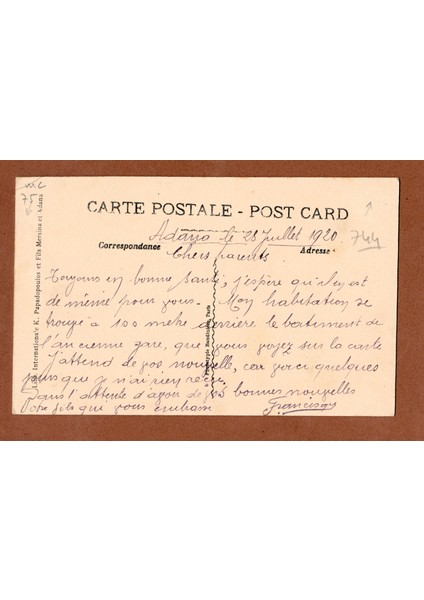 CARTE POSTALE - POST CARD
Adana le 28 Juillet 1920
Correspondance
Adresse
Chers parents
Toujours en bonne santé, j'espère qu'il en est
de même pour vous. Mon habitation se
trouve a 100 metre derrière le batiment de
l'ancienne gare, que vous voyez sur la carte
J'attend de vos nouvelle, car voici quelques
jours que je n'ai rien reçu.
Dans l'attente d'avoir de vos bonnes nouvelles
Votre fils qui vous embrasse
Internationale K. Papadopoulos et Fils Mersina et Adana
Paris
75
744